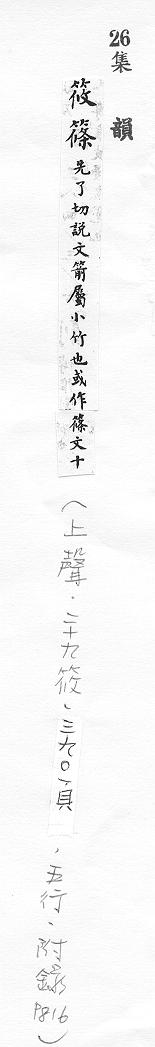 26集 韻
筱篠先了切說文箭屬小竹也或作篠文十
(上聲.二十九筱、三九〇頁、五行、附錄P816)